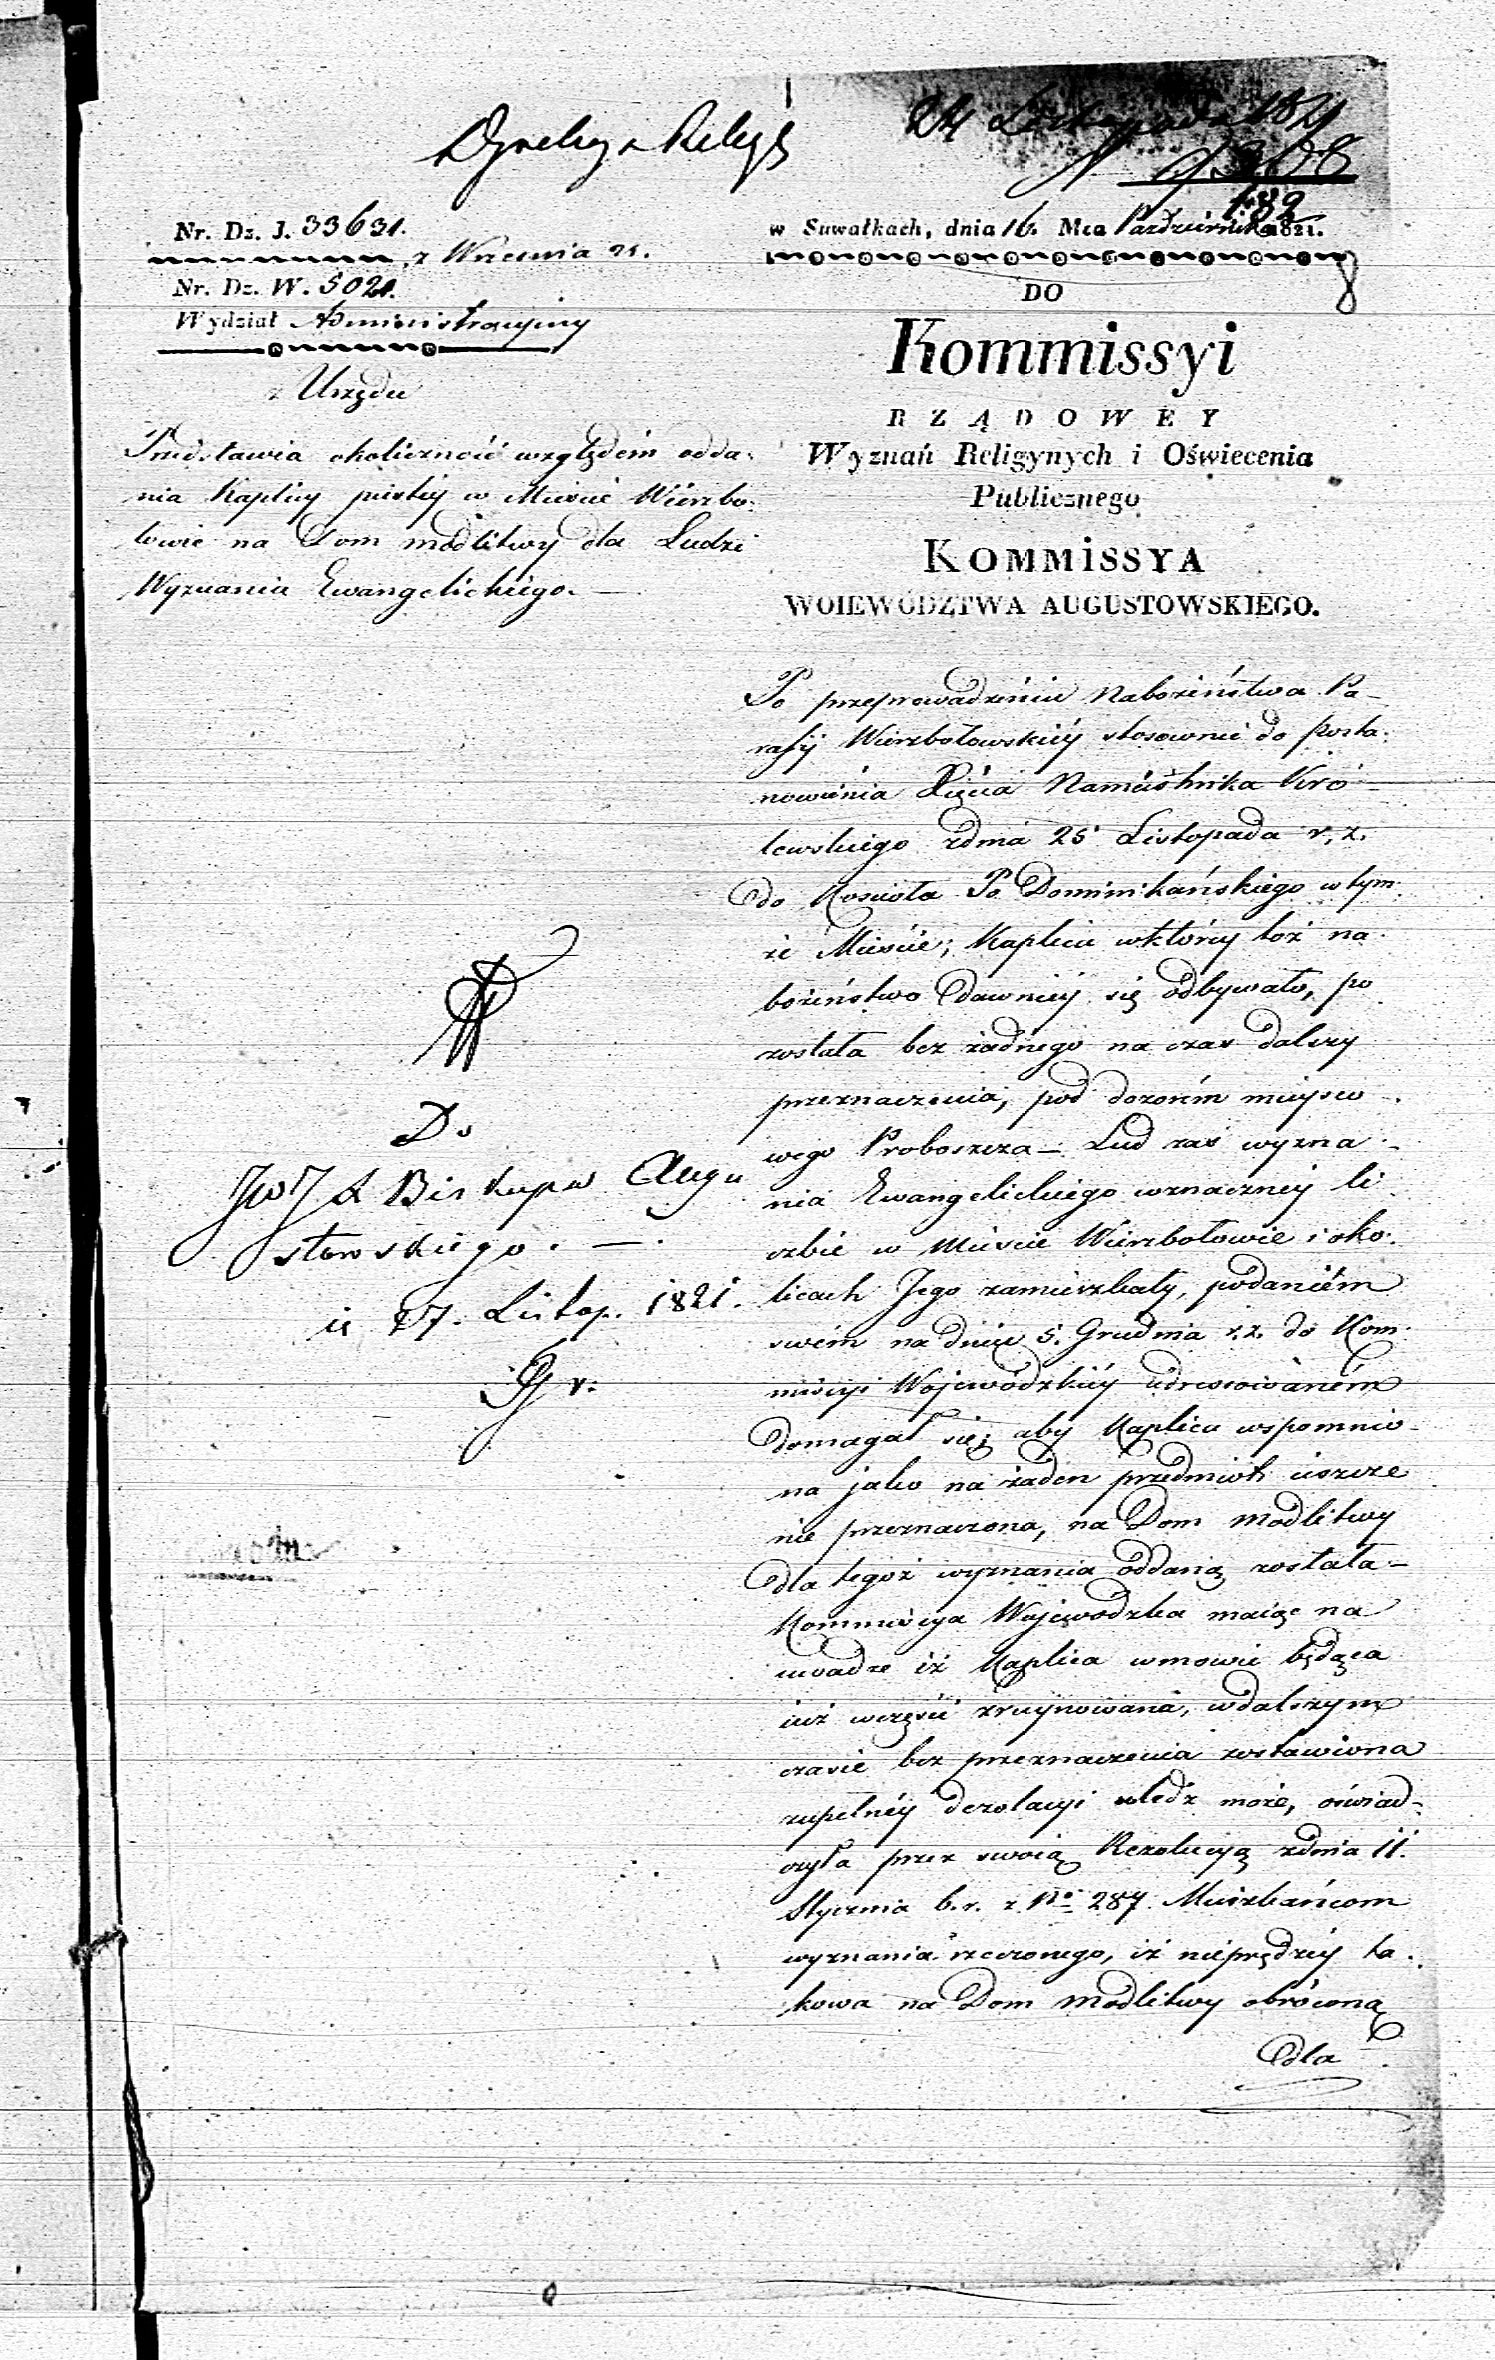 24 Listopada 1821
N 9308
182
8
Nr. Dz. J. 33631.
z Września 21.
Nr. Dz. W. 5021.
Wydział Administracyiny
z Urzędu
Przedstawia okoliczność względem odda-
nia Kaplicy pustey w Mieście Wierzbo-
łowie na Dom modlitwy dla Ludzi
Wyznania Ewangelickiego.
w Suwałkach, dnia 16. Mca Października 1821.
DO
Kommissyi
RZĄDOWEY
Wyznań Religynych i Oświecenia
Publicznego
KOMMISSYA
WOIEWÓDZTWA AUGUSTOWSKIEGO.
Po przeprowadzeniu Nabożeństwa Pa-
rafij Wierzbołowskiéy stosownie do posta-
nowienia Xięcia Namiestnika Kró-
lewskiego zdnia 25 Listopada r. z.
do Kościoła Po Dominikańskiego w tym-
że Mieście; Kaplica wktórey toż na-
bożeństwo dawniéy się odbywało, po
została bez żadnego na czas dalszy
przeznaczenia, pod dozorem mieysco-
wego Proboszcza – Lud zaś wyzna-
nia Ewangelickiego wznaczney li-
czbie w Mieście Wierzbołowie i oko-
licach Jego zamieszkały, podaniem
swém na dniu 5. Grudnia r. z. do Kom-
missyi Wojewódzkiéy adressowaném
domagał się; aby Kaplica wspomnio-
na jako na żaden przedmiot ieszcze
nie przeznaczona, na Dom modlitwy
dla tegoż wyznania oddaną została –
Kommissya Wojewódzka maiąc na
uwadze iż Kaplica wmowie będąca
iuż wczęści zruynowana, wdalszym
czasie bez przeznaczenia zostawiona
zupełnéy dezolacyi uledz może, oświad-
czyła przez swoią Rezolucyą zdnia 11.
Stycznia b. r. z No 287. Mieszkańcom
wyznania rzeczonego, iż nieprędzéy ta-
kowa na Dom modlitwy obróconą
dla
Do
JWJX Biskupa Augu
stowskiego. –
d. 27. Listop. 1821.